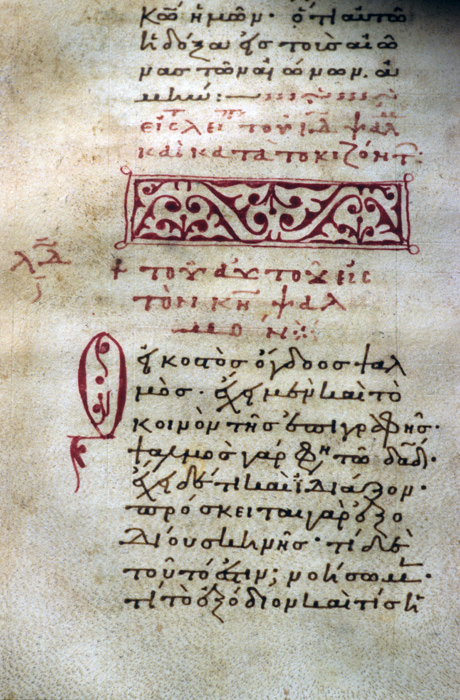 κῶ ἡμῶν· ὅτι αὐτῶ
ἡ δόξα εἰς τοὺς αἰῶ
νας τῶν αἰώνων. ἀ
μήν:
εἰς λει τοῦ ιδ ψαλ
καὶ κατὰ τοκιζόντ:
+ τοῦ αὐτοῦ εἰς
τὸν κη ψαλ
μον
Ὁ εἰκοστὸς ὄγδοος ψαλ
μὸς· ἔχει μὲν καὶ τὸ
κοινὸν τῆς ἐπιγραφῆς·
ψαλμὸς γάρ φη τῶ δαδ·
ἔχει δέ τι καὶ ἰδιάζον·
πρόσκειται γὰρ ἐξο
δίου σκηνῆς· τί δὲ
τοῦτό ἐστιν; νοήσωμεν·
τί τὸ ἐξόδιον καὶ τίς ἡ